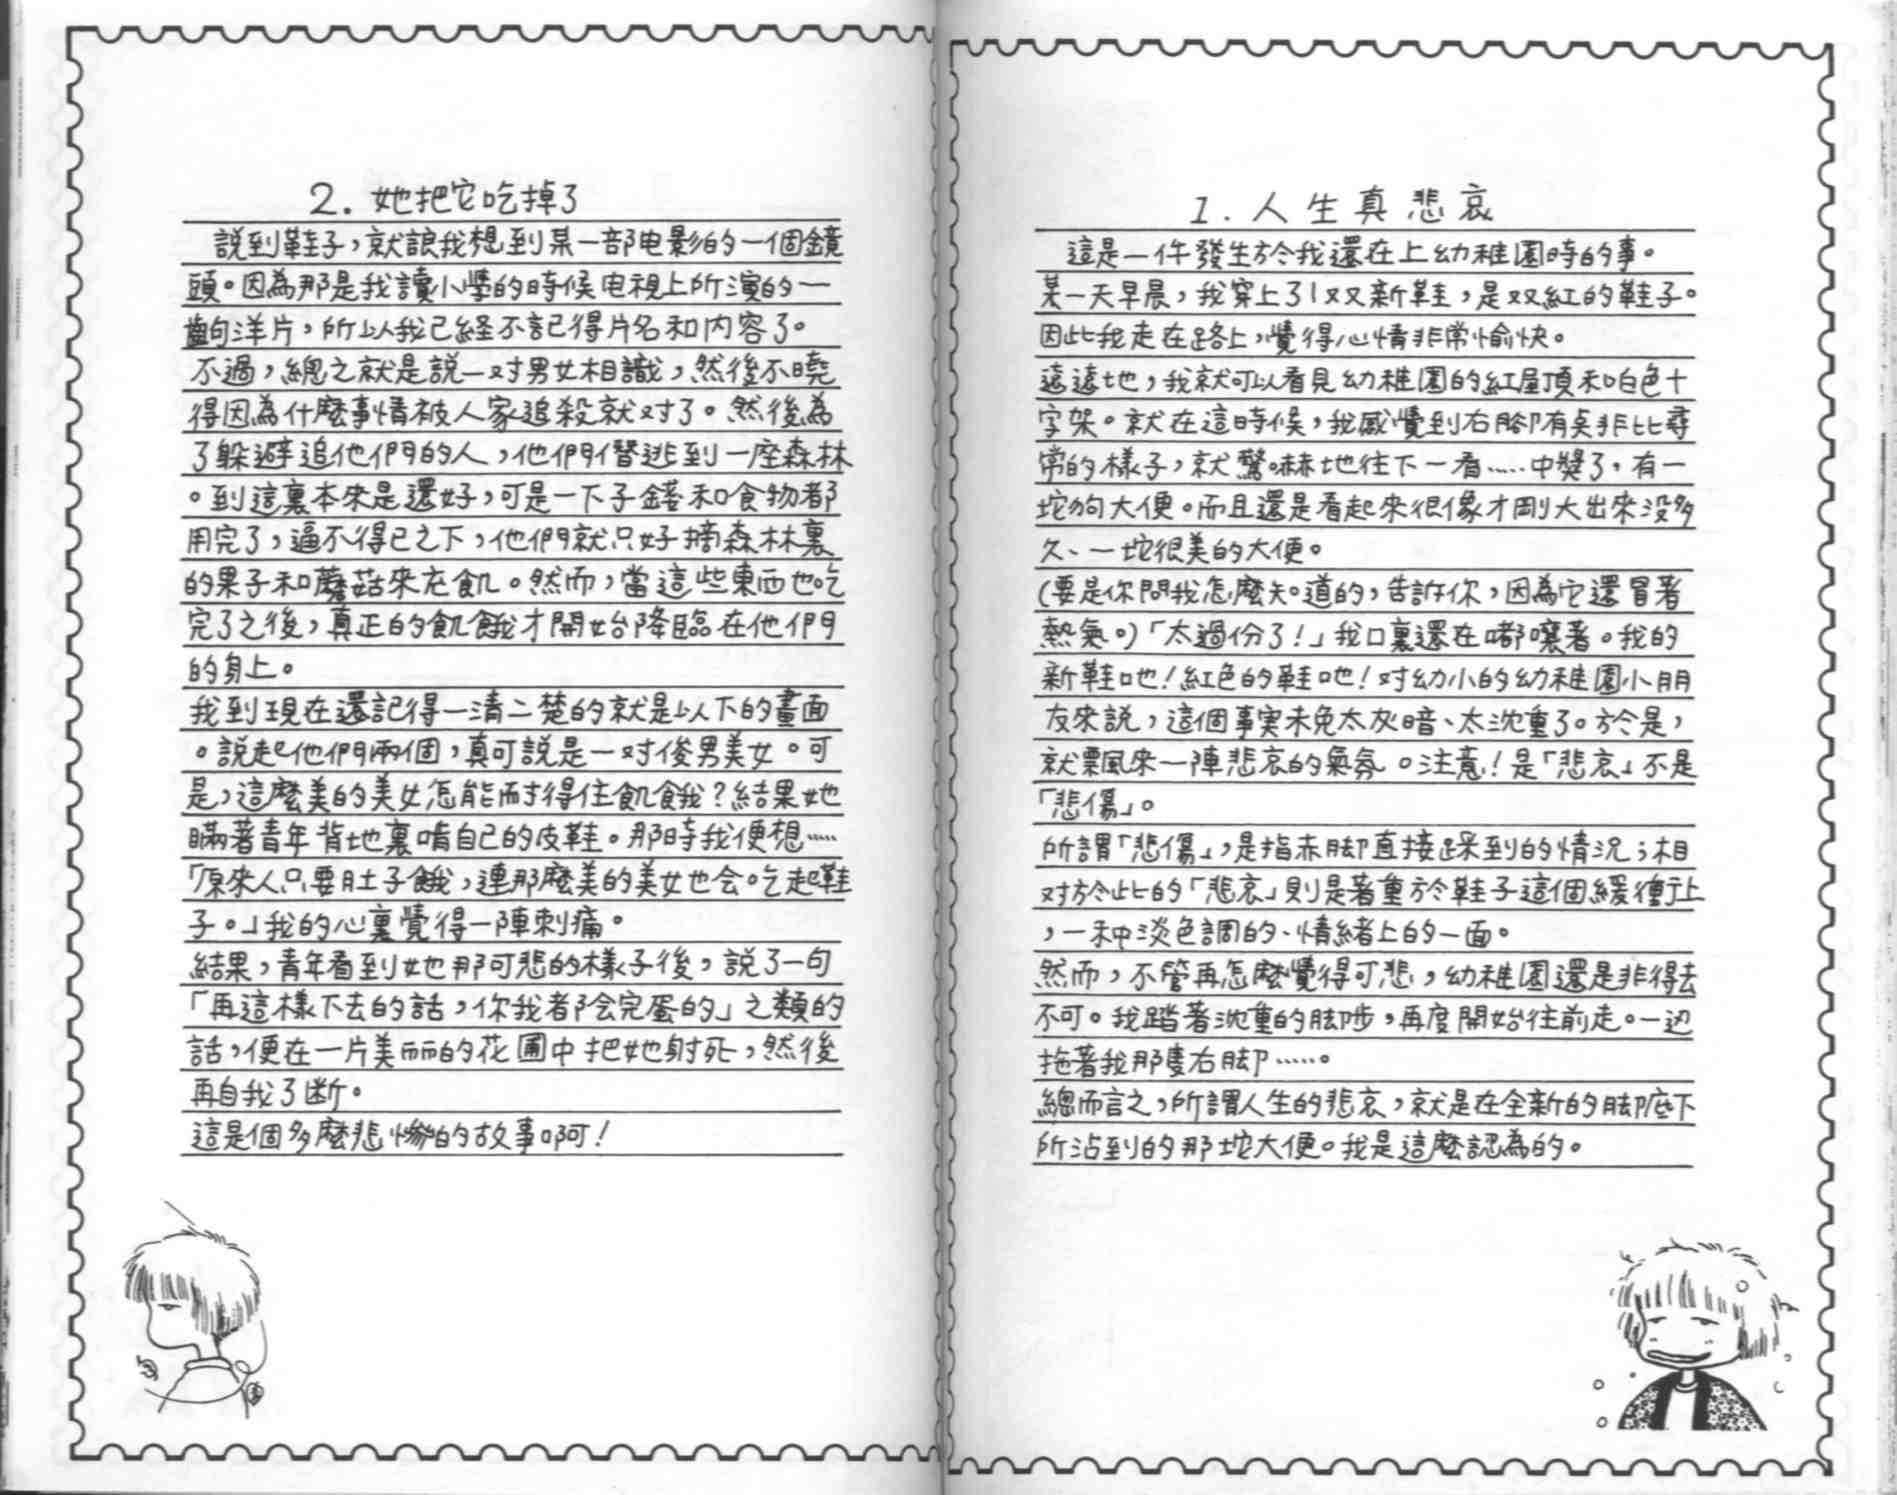 1. 人生真悲哀
這是一件發生於我還在上幼稚園時的事。
某一天早晨，我穿上了1双又新鞋，是双紅的鞋子。
因此我走在路上，覺得心情非常愉快。
遠遠地，我就可以看見幼稚園的紅屋頂和白色十
字架。就在這時候，我感覺到右脚有臭非比尋
常的樣子，就驚嚇地往下一看……中奬了，有一
坨狗大便。而且還是看起來很像才剛大出來没多
久、一坨很美的大便。
(要是你問我怎麼知道的，告訴你，因為它還冒著
熱氣。)「太過份了!」我口裏還在嘟嚷著。我的
新鞋吔!紅色的鞋吔!对幼小的幼稚園小朋
友來説，這個事実未免太灰暗、太沈重了。於是，
就飄來一陣悲哀的氣氛。注意!是「悲哀」不是
「悲傷」。
所謂「悲傷」，是指赤脚直接踩到的情況；相
对於此的「悲哀」則是著重於鞋子這個緩衝上
，一种淡色調的、情緒上的一面。
然而，不管再怎麼覺得可悲，幼稚園還是非得去
不可。我踏著沈重的脚步，再度開始往前走。一边
拖著我那隻右脚……。
總而言之，所謂人生的悲哀，就是在全新的脚底下
所沾到的那坨大便。我是這麼認為的。
2. 她把它吃掉了
説到鞋子，就讓我想到某一部电影的一個鏡
頭。因為那是我讀小學的時候电視上所演的一
齣洋片，所以我已経不記得片名和内容了。
不過，總之就是説一对男女相識，然後不曉
得因為什麼事情被人家追殺就对了。然後為
了躲避追他們的人，他們僭逃到一座森林
。到這裏本來是還好，可是一下子錢和食物都
用完了，逼不得已之下，他們就只好摘森林裏
的果子和蘑菇來充飢。然而，當這些東西也吃
完了之後，真正的飢餓才開始降臨在他們
的身上。
我到現在還記得一清二楚的就是以下的畫面
。説起他們兩個，真可説是一对俊男美女。可
是，這麼美的美女怎能耐得住飢餓?結果她
瞞著青年背地裏啃自己的皮鞋。那時我便想……
「原來人只要肚子餓，連那麼美的美女也会吃起鞋
子。」我的心裏覺得一陣刺痛。
結果，青年看到她那可悲的樣子後，説了一句
「再這樣下去的話，你我都会完蛋的」之類的
話，便在一片美丽的花圃中把她射死，然後
再自我了断。
這是個多麼悲慘的故事啊!